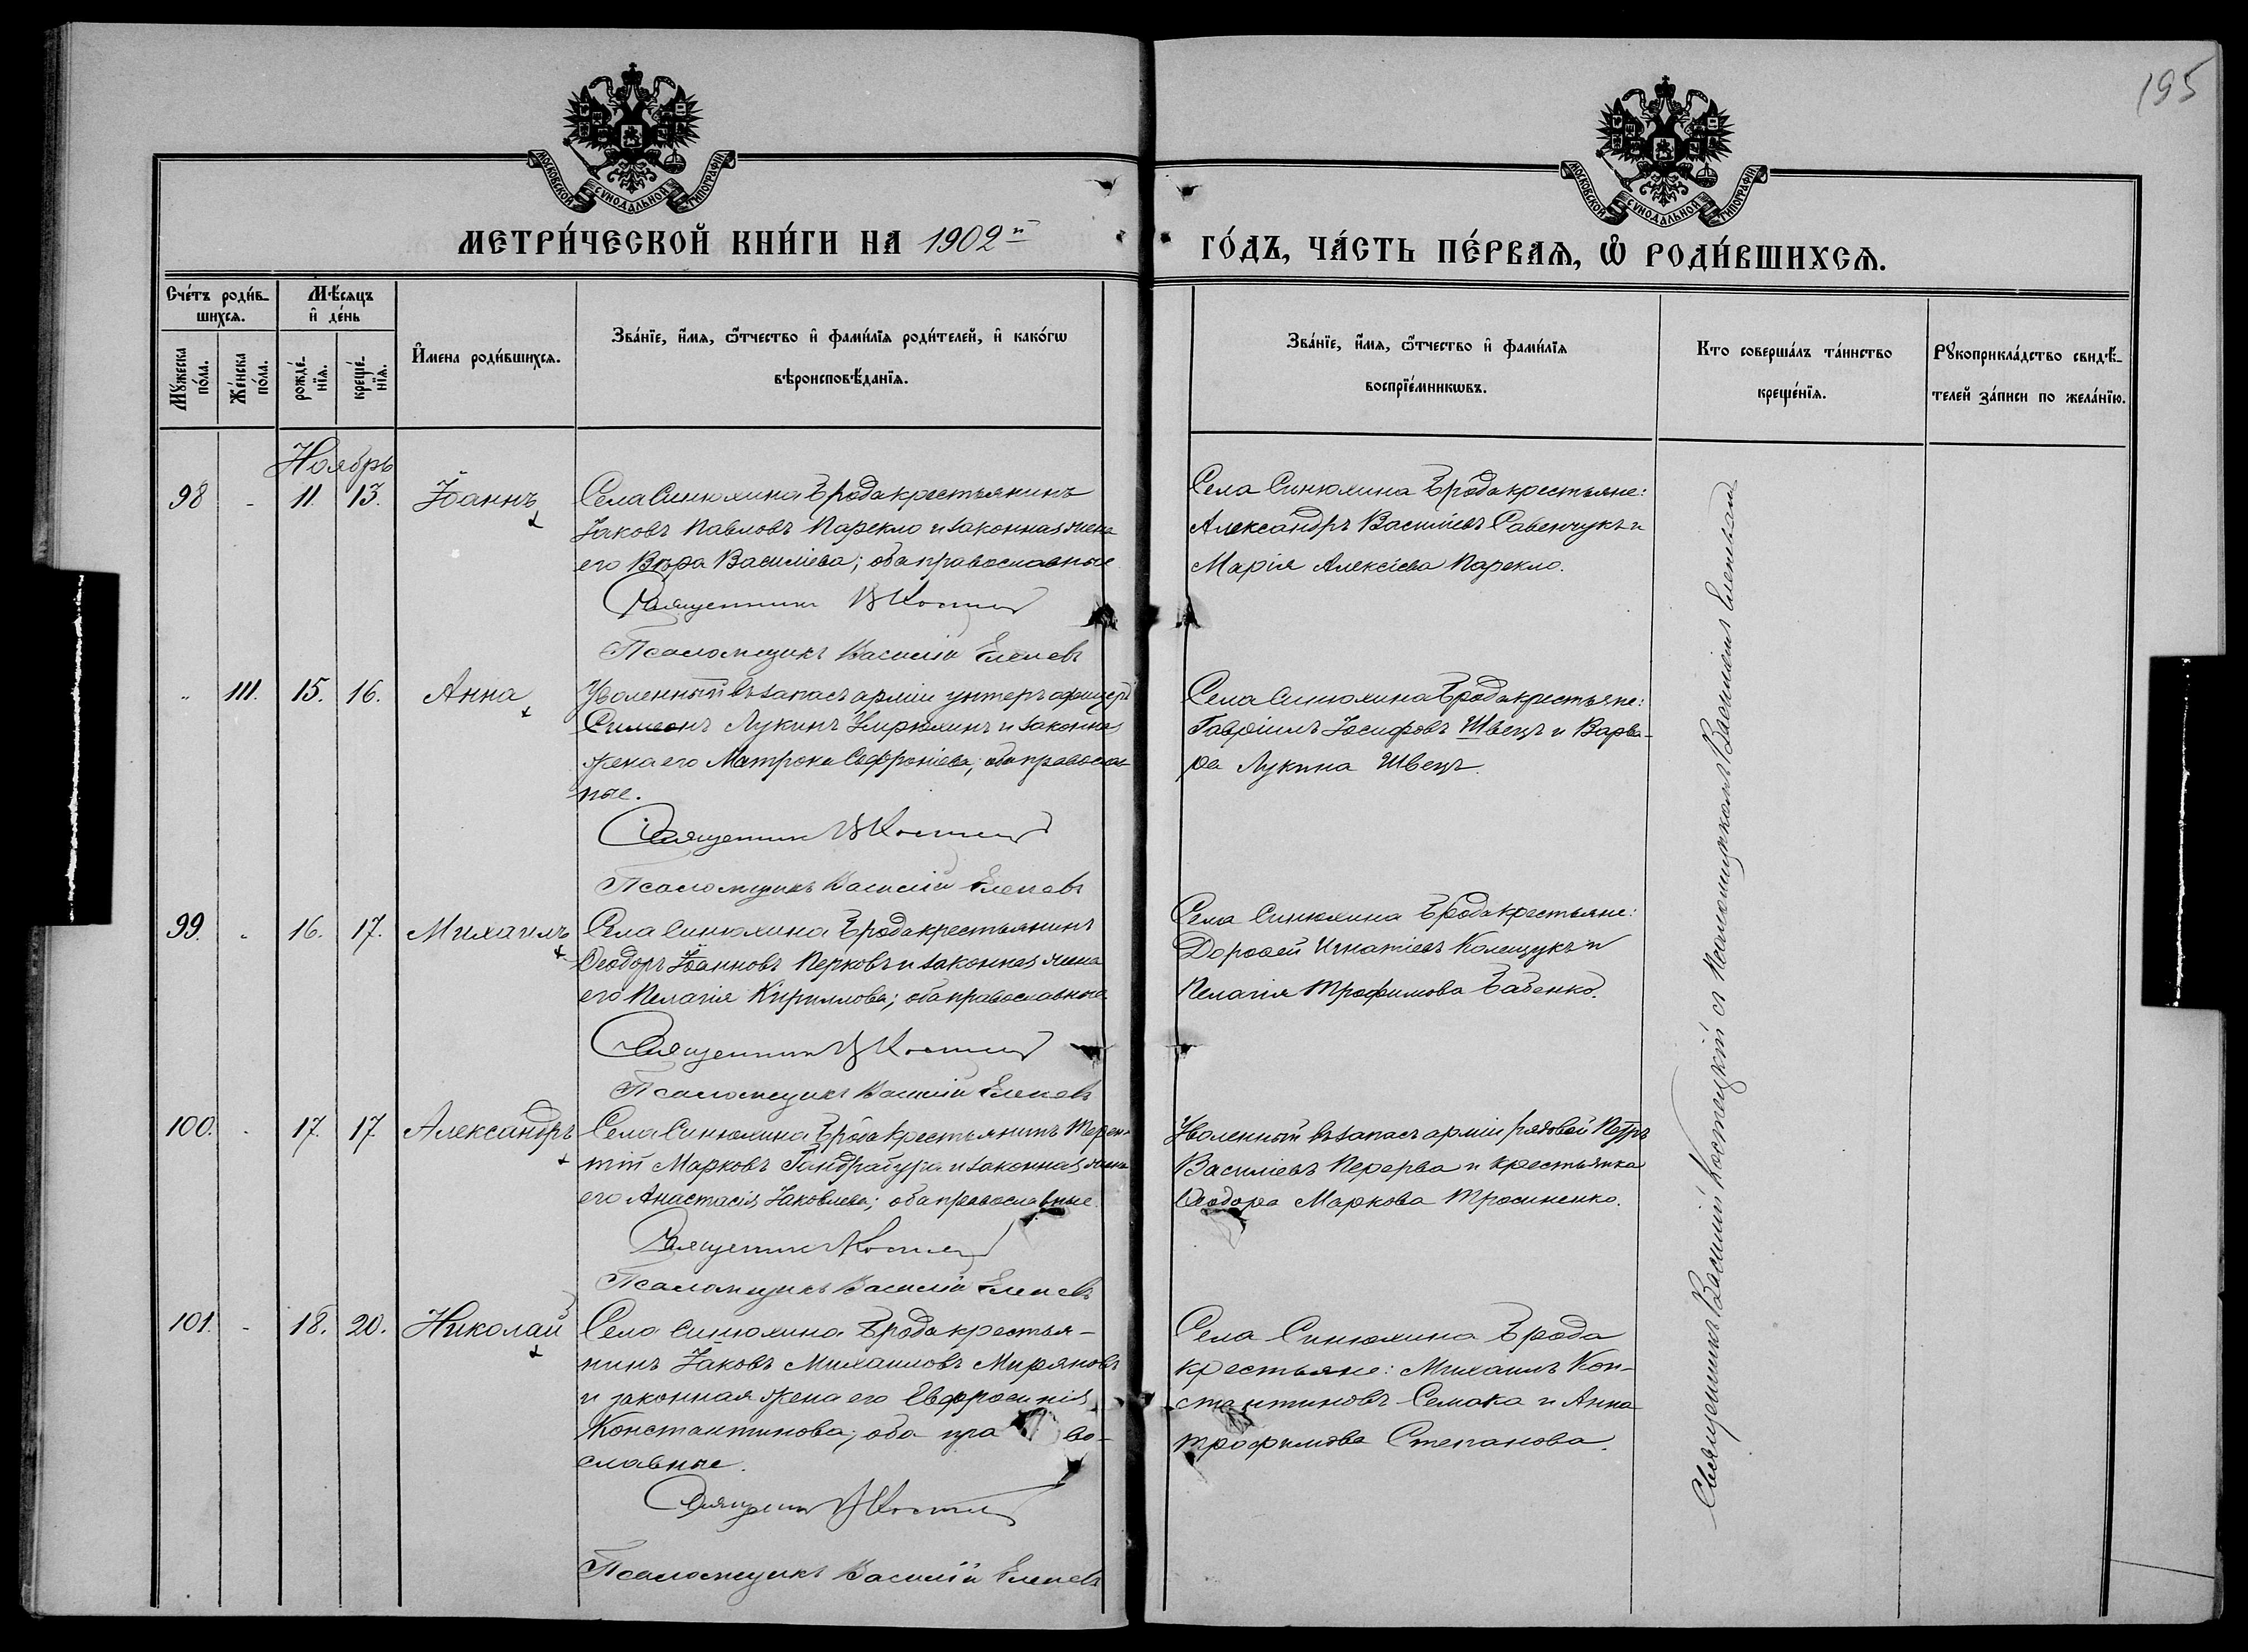 195
МОСКОВСКОЙ СѴНОДАЛЬНОЙ ТИПОГРАФІИ
МОСКОВСКОЙ СѴНОДАЛЬНОЙ ТИПОГРАФІИ
МЕТРИ́ЧЕСКОЙ КНИ́ГИ НА 1902й
ГО́ДЪ, ЧА́СТЬ ПЕ́РВАѦ, Ѡ҆ РОДИ́ВШИХСѦ.
Сче́тъ роди́в-
шихсѧ.
Мѣ́сѧцъ
и҆ де́нь
Мꙋ́жеска
по́ла.
Же́нска
по́ла.
рожде́-
нїѧ.
креще́-
нїѧ.
И҆мена роди́вшихсѧ.
Зва́нїе, и҆́мѧ, ѻ҆́тчество и҆ фами́лїѧ роди́телей, и҆ како́гѡ
вѣроисповѣ́данїѧ.
Зва́нїе, и҆́мѧ, ѻ҆́тчество и҆ фами́лїѧ
воспрїе́мникѡвъ.
Кто соверша́лъ та́инство
креще́нїѧ.
Рꙋкоприкла́дство свидѣ́-
телей за́писи по жела́нїю.
Ноябрь
98 - 11. 13. Іоаннъ
Села Синюхина Брода крестьянинъ
Іаковъ Павловъ Парекло и законная жена
его Вѣра Василіева; оба православные
Священникъ В Костец
Псаломщикъ Василій Елепевъ
Села Синюхина Брода крестьяне:
Александръ Василіевъ Савенчукъ и
Марія Алексіева Парекло.
" 111. 15. 16. Анна
Уволенный въ запасъ арміи унтеръ офицеръ
Симеонъ Лукинъ Кирюхинъ и законная
жена его Матрона Софроніева; оба православ-
ные.
Священник В Костец
Псаломщикъ Василій Елепевъ
Села Синюхина Брода крестьяне:
Гавріилъ Іосифовъ Швецъ и Варва-
ра Лукина Швецъ.
99. " 16. 17. Михаилъ
Села Синюхина Брода крестьянинъ
Ѳеодоръ Іоанновъ Перковъ и законная жена
его Пелагія Кириллова; оба православные
Священник В Костец
Псаломщикъ Василій Елепевъ
Села Синюхина Брода крестьяне:
Дороѳей Игнатіевъ Колещукъ и
Пелагія Трофимова Бабенко.
100. - 17. 17. Александръ
Села Синюхина Брода крестьянинъ Терен-
тій Марковъ Гандрабура и законная жена
его Анастасія Іаковлева; оба православные
Священник Костец
Псаломщикъ Василій Елепевъ
Уволенный въ запасъ арміи рядовой Петръ
Василіевъ Перерва и крестьянка
Ѳеодора Маркова Тросиненко.
101. - 18. 20. Николай
Села Синюхина Брода крестья-
нинъ Іаковъ Михаиловъ Миряновъ
и законная жена его Евфросинія
Константинова; оба пра во-
славные.
Священ В Костец
Псаломщикъ Василій Елепевъ
Села Синюхина Брода
крестьяне: Михаилъ Кон-
стантиновъ Семака и Анна
Трофимова Степанова.
Священникъ Василій Костецкій съ Псаломщикомъ Василіемъ Елепевым